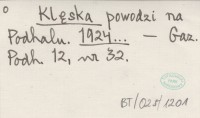 Klęska powodzi na
Podhalu. 1924... — Gaz.
Podh. 12, nr 32.
BT/021/1201